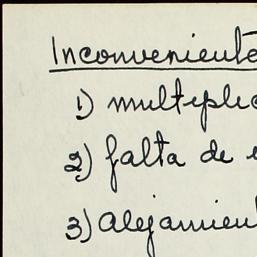 Inconveniente
1) multiplic
2) falta de
3) alejamien